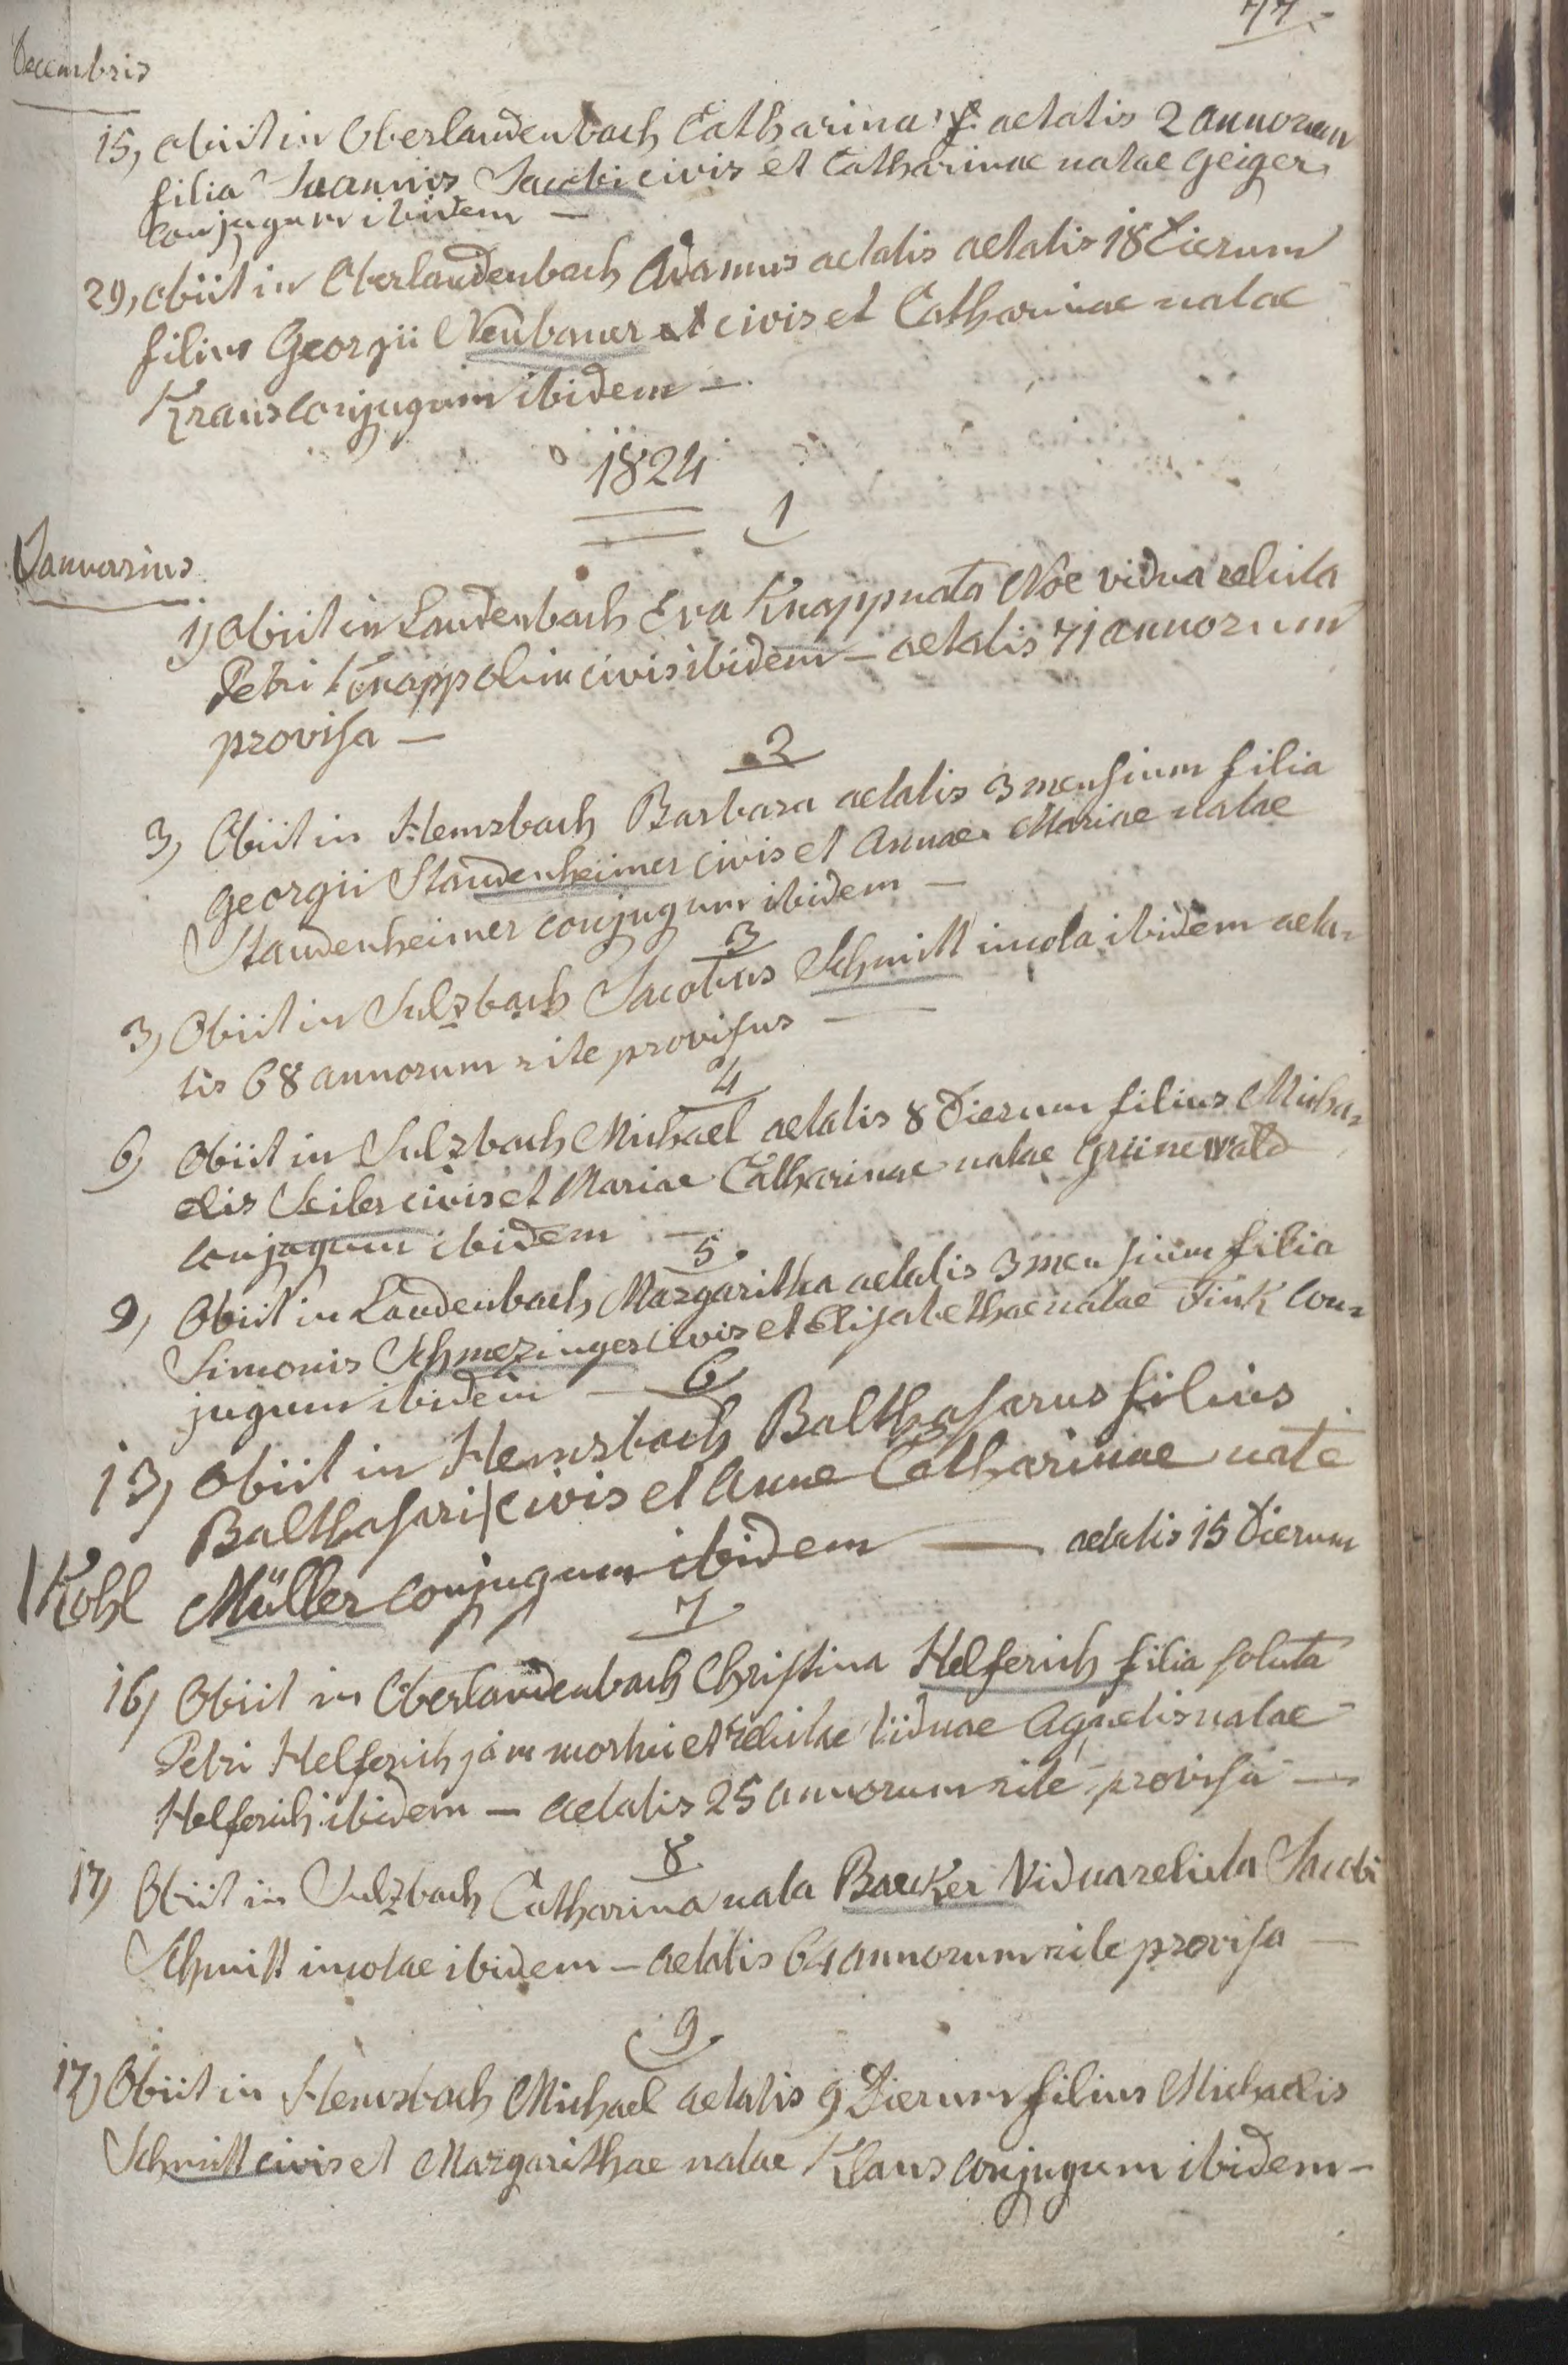 77
Decembris
15, obiit in Oberlaudenbach Catharina aetatis 2 annorum
filia Joannis Jacobi civis et Catharinae natae Geiger
conjugum ibidem —
29, obiit in Oberlaudenbach Adamus aetatis aetatis 18 dierum
filius Georgii Neubauer et civis et Catharinae natae
Kraus conjugum ibidem —
1824
1
Januarius
1) Obiit in Laudenbach Eva Knapp nata Noe vidua relicta
Petri Knapp olim civis ibidem — aetatis 71 annorum
provisa —
2
3) Obiit in Hemsbach Barbara aetatis 3 mensium filia
Georgii Staudenheimer civis et Annae Mariae natae
Staudenheimer conjugum ibidem —
3
3) Obiit in Sulzbach Jacobus Schmitt incola ibidem aeta=
tis 68 annorum rite provisus —
4
6) Obiit in Sulzbach Michael aetatis 8 dierum filius Micha=
elis Seiler civis et Mariae Catharinae natae Grünewald
conjugum ibidem —
5.
9, Obiit in Laudenbach Margaritha aetatis 3 mensium filia
Simonis Schmezinger civis et Elisabethae natae Fink con=
jugum ibidem —
6
13, Obiit in Hemsbach Balthasarus filius
Balthasari | civis et Anne Catharinae nate
| Kohl Müller conjugum ibidem — aetatis 15 dierum
7
16, Obiit in Oberlaudenbach Christina Helferich filia soluta
Petri Helferich jam mortui et relictae viduae Agnetis natae
Helferich ibidem — aetatis 25 annorum rite provisa —
8
17, Obiit in Sulzbach Catharina nata Baecker vidua relicta Jacobi
Schmitt incolae ibidem — aetatis 64 annorum rite provisa —
9.
17, Obiit in Hemsbach Michael aetatis 9 dierum filius Michaelis
Schmitt civis et Margarithae natae Klaus conjugum ibidem —